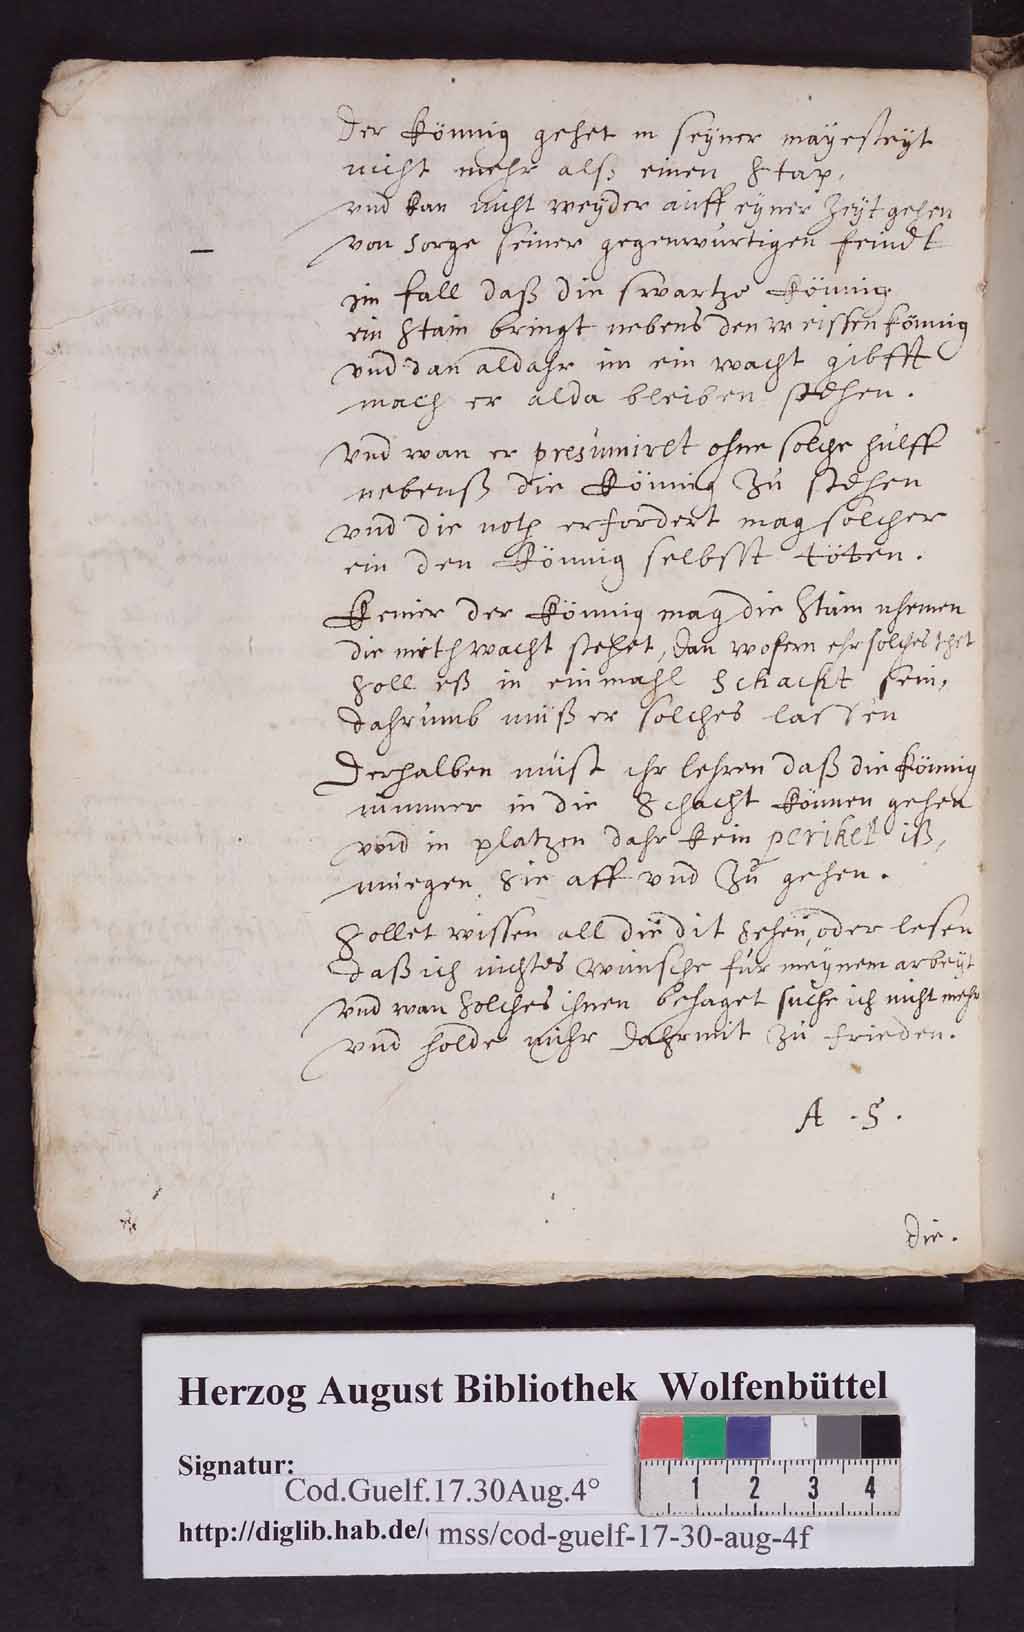 Der Könnig gehet in seyner mayesteyt
nicht mehr alß einen Stap,
vnd kan nicht weyder auff eyner Zeyt gehen
von sorge seiner gegenwurtigen feindt
im fall daß die swartze Könnig
ein Stain bringt nebens den weissen könnig
vnd dan aldahr im ein wacht gibfft
mach er alda bleiben stehen.
Vnd wan er presumiret ohne solche hulff
nebenß die Könnig zu stehen
vnd die noth erfordert mag solcher
ein den Könnig selbsst töten.
Keiner der Könnig mag die Stain nhemen
die mith wacht stehet, dan wofern ehr solches thet
soll eß in einmahl Schacht sein,
dahrumb muß er solches lassen
Derhalben must ihr lehren daß die könnig
nimmer in die Schacht können gehen
vnd in platzen dahr kein perikel iß,
muegen Sie aff vnd zu gehen.
Sollet wissen all die dit sehen, oder lesen
daß ich nichtes wunsche fur meynem arbeyt
vnd wan solches ihnen behaget suche ich nicht mehr
vnd holde mihr dahrmit zu frieden.
A . S .
die.
Herzog August Bibliothek Wolfenbüttel
Signatur:
Cod.Guelf.17.30Aug.4°
http://diglib.hab.de/
mss/cod-guelf-17-30-aug-4f
1 2 3 4